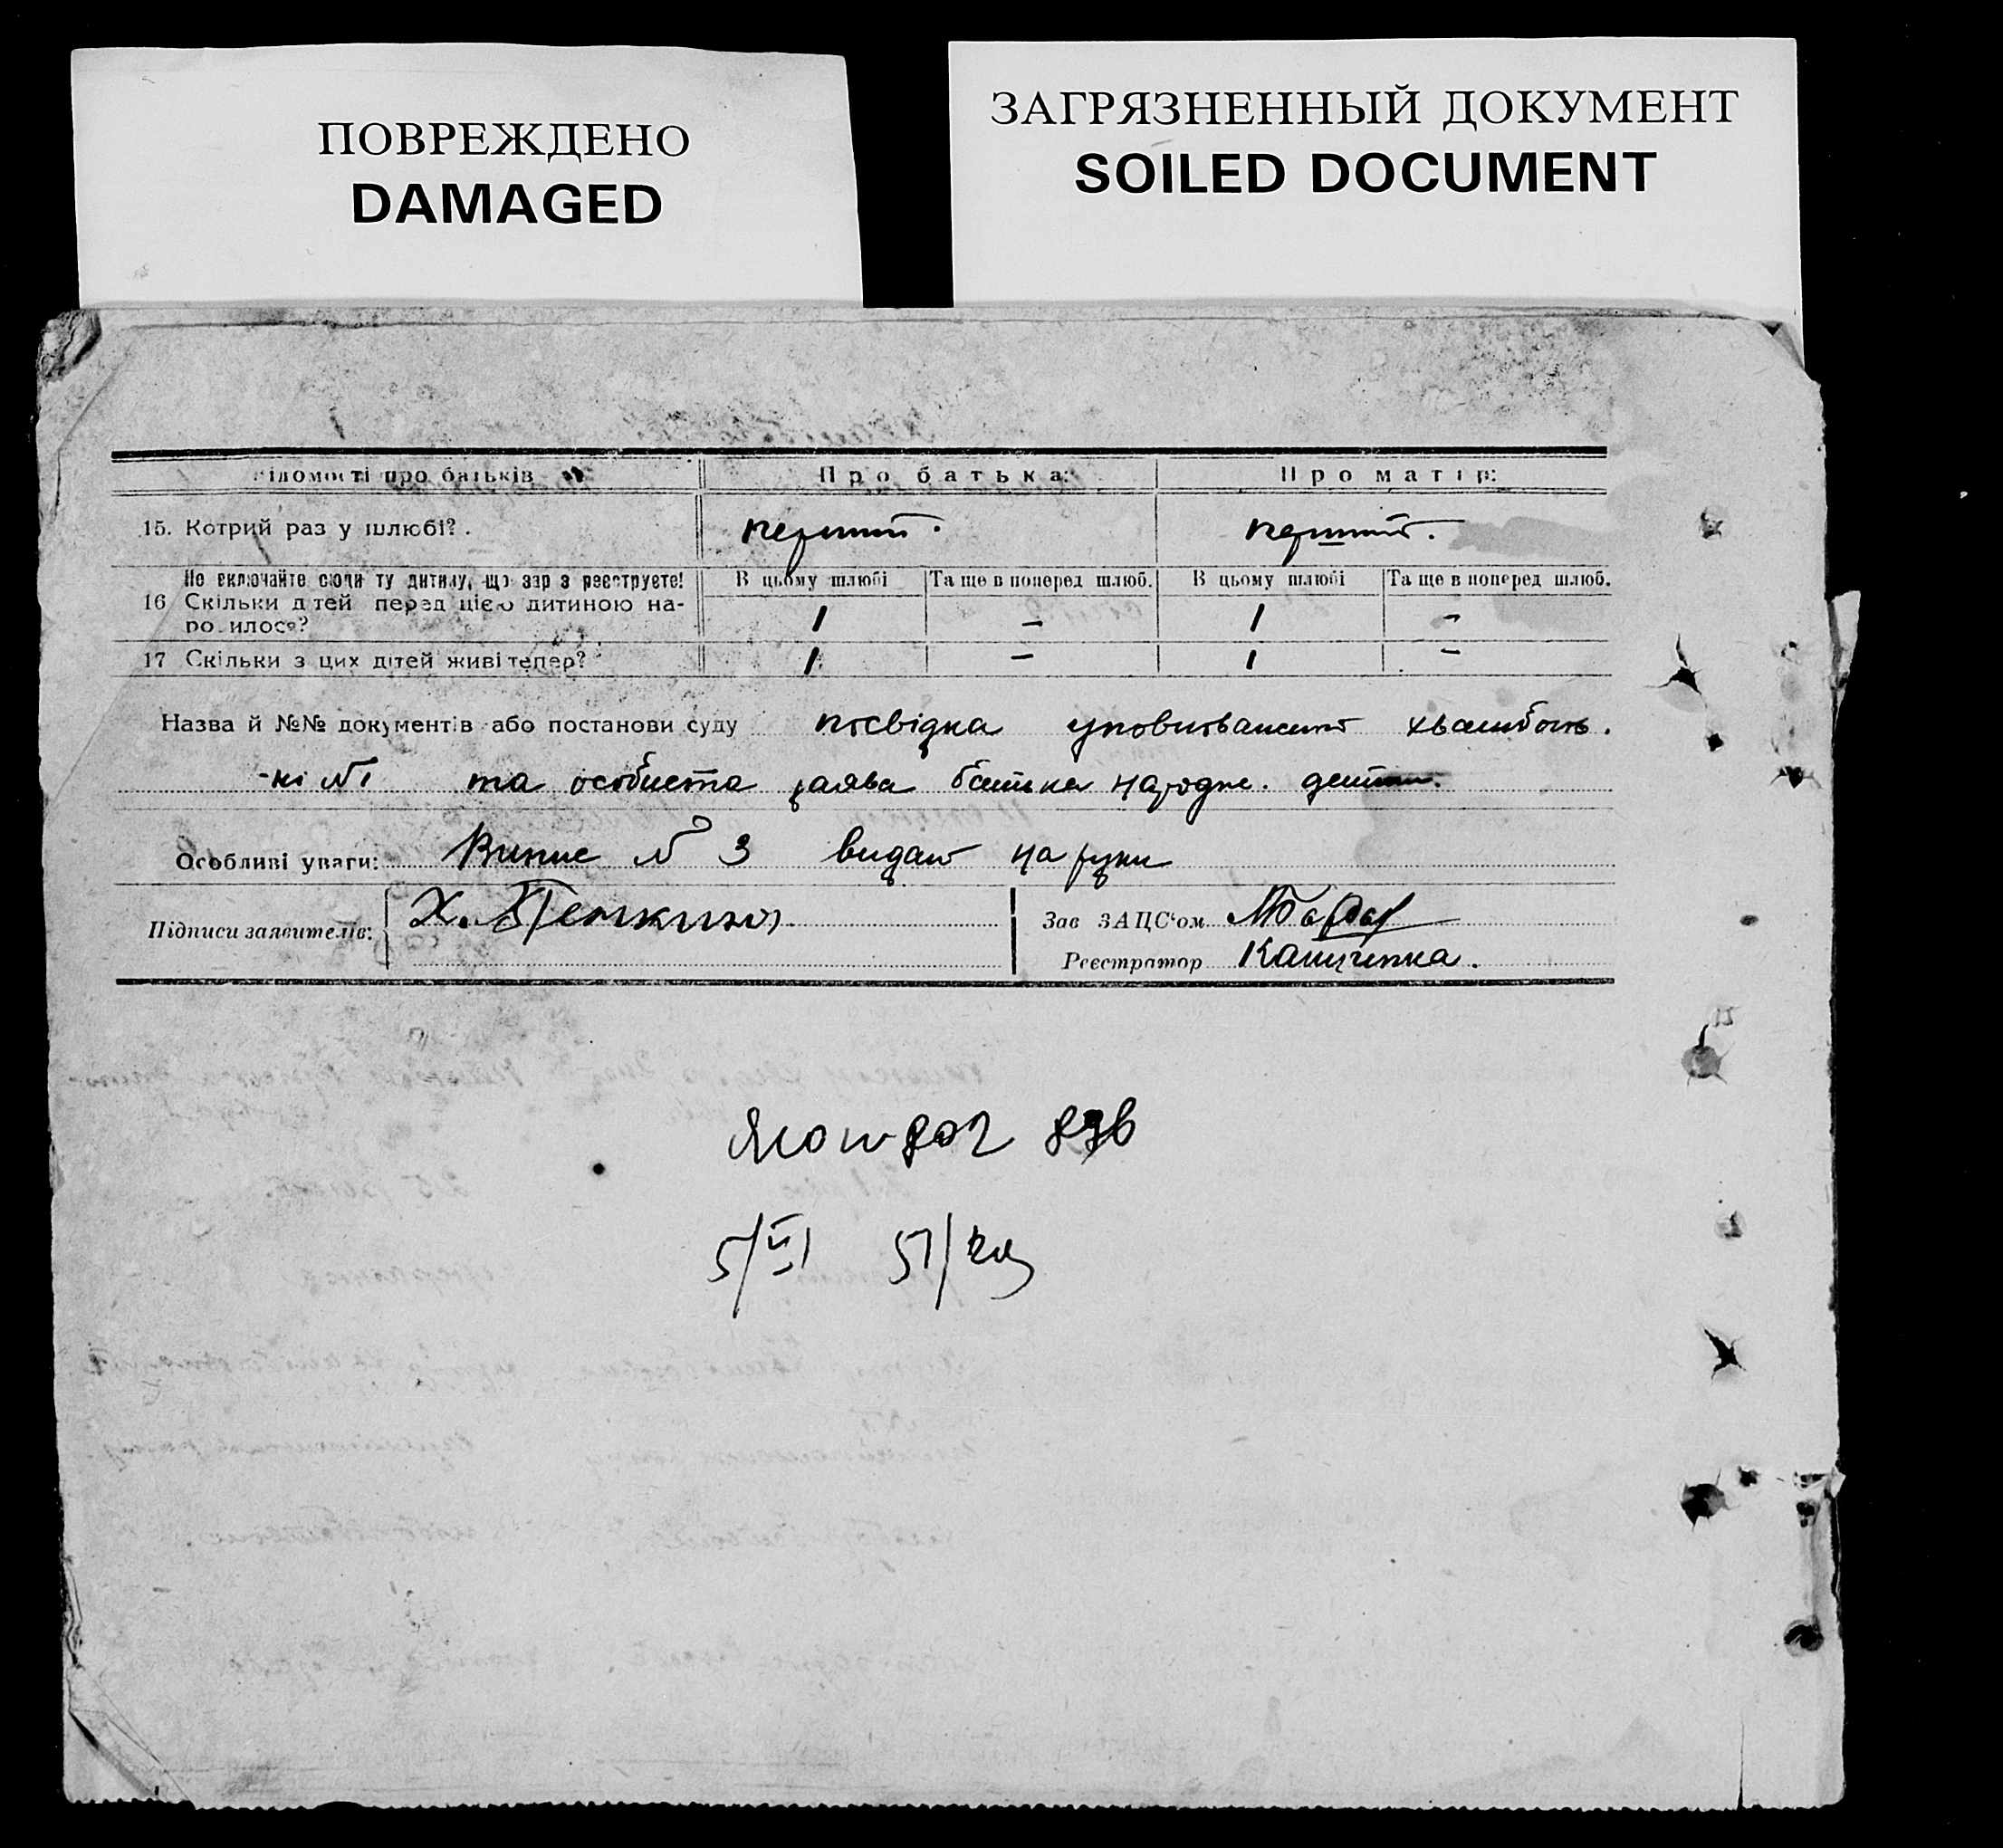 ПОВРЕЖДЕНО
DAMAGED
ЗАГРЯЗНЕННЫЙ ДОКУМЕНТ
SOILED DOCUMENT
ідомості про батьків Про батька: Про матір:
15. Котрий раз у шлюбі? . перший. перший.
Не включайте сюди ту дитину, що зараз реєструєте! В цьому шлюбі Та ще в поперед шлюб. В цьому шлюбі Та ще в поперед шлюб.
16 Скільки дітей перед цією дитиною на-
родилося? 1 – 1 –
17 Скільки з цих дітей живі тепер? 1 – 1 –
Назва й №№ документів або постанови суду посвідка
-ні №1 та особиста заява батька
Особливі уваги: Випис № 3 видано на руки
Підписи заявителів: Х.
Зав ЗАЦС'ом
Реєстратор
5/VI 51/